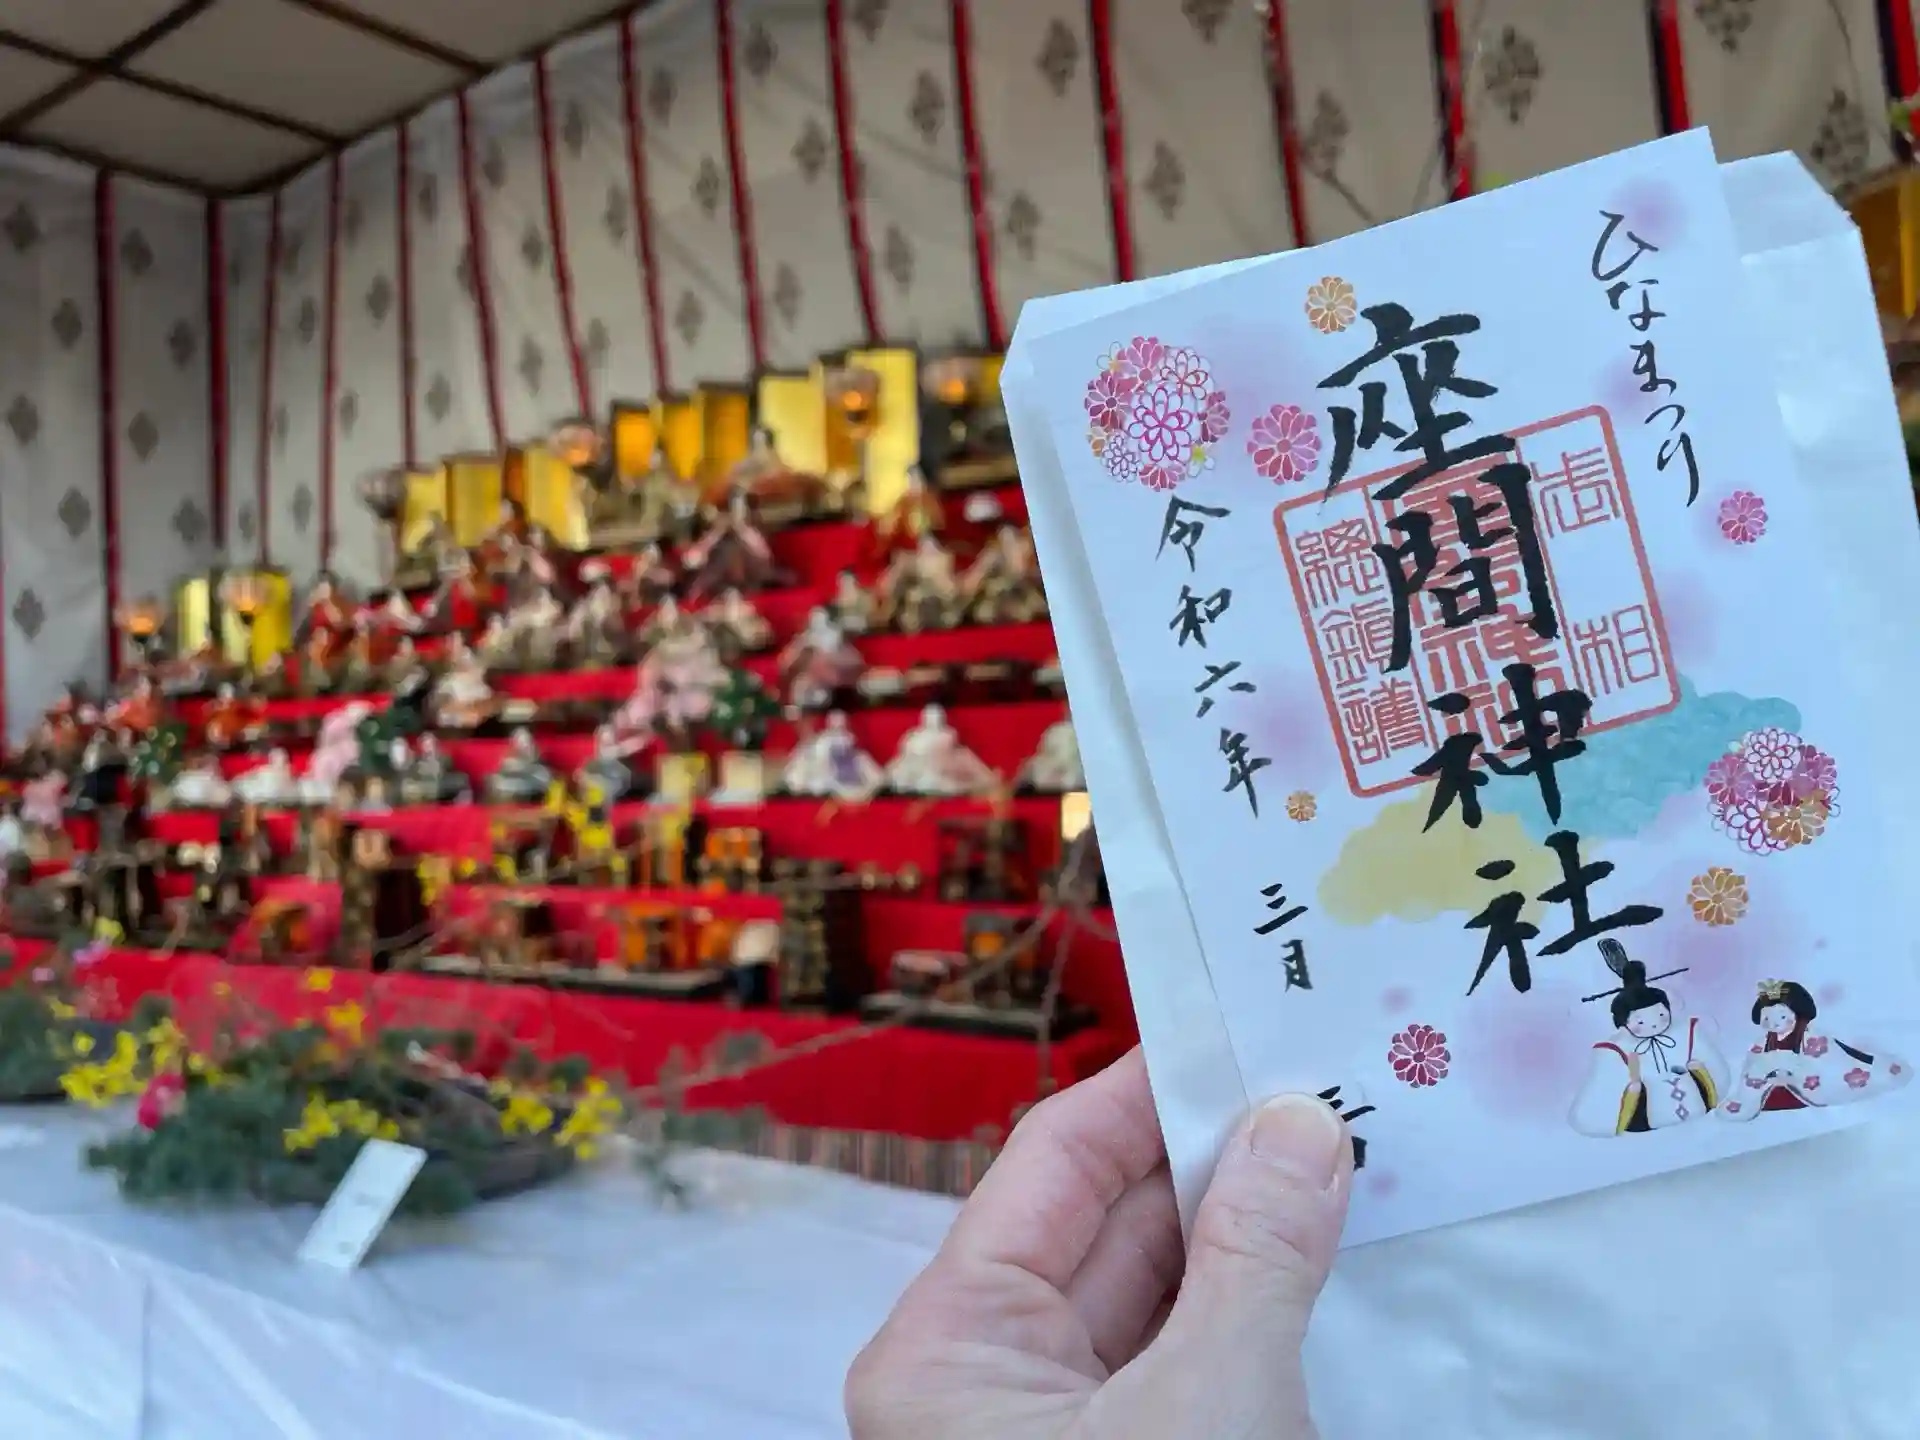 ひなまつり
座間神社
相武
座間神社
総鎮護
令和六年
三月
三